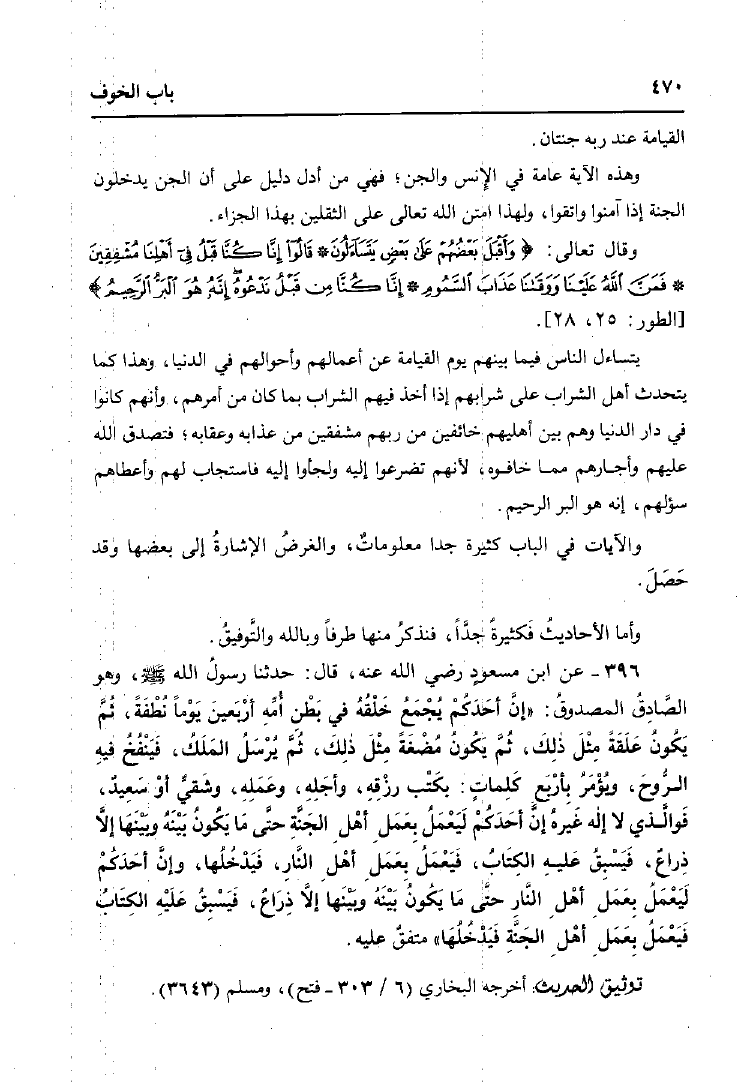 ٤٧٠
باب الخوف
القيامة عند ربه جنتان .
وهذه الآية عامة في الإنس والجن؛ فهي من أدل دليل على أن الجن يدخلون
الجنة إذا آمنوا واتقوا، ولهذا امتن الله تعالى على الثقلين بهذا الجزاء .
وقال تعالى: ﴿ وَأَقْبَلَ بَعْضُهُمْ عَلَىٰ بَعْضٍ يَتَسَاءَلُونَ * قَالُوٓا۟ إِنَّا كُنَّا قَبْلُ فِىٓ أَهْلِنَا مُشْفِقِينَ
* فَمَنَّ ٱللَّهُ عَلَيْنَا وَوَقَىٰنَا عَذَابَ ٱلسَّمُومِ * إِنَّا كُنَّا مِن قَبْلُ نَدْعُوهُ ۖ إِنَّهُۥ هُوَ ٱلْبَرُّ ٱلرَّحِيمُ ﴾
[الطور: ٢٥، ٢٨].
يتساءل الناس فيما بينهم يوم القيامة عن أعمالهم وأحوالهم في الدنيا، وهذا كما
يتحدث أهل الشراب على شرابهم إذا أخذ فيهم الشراب بما كان من أمرهم، وأنهم كانوا
في دار الدنيا وهم بين أهليهم خائفين من ربهم مشفقين من عذابه وعقابه؛ فتصدق الله
عليهم وأجارهم مما خافوه، لأنهم تضرعوا إليه ولجأوا إليه فاستجاب لهم وأعطاهم
سؤلهم، إنه هو البر الرحيم.
والآيات في الباب كثيرة جدا معلوماتٌ، والغرضُ الإشارةُ إلى بعضها وقد
حَصَلَ.
وأما الأحاديثُ فَكثيرةٌ جدَّاً، فنذكرُ منها طرفاً وبالله والتَّوفيقُ.
٣٩٦ـ عن ابن مسعودٍ رضي الله عنه، قال: حدثنا رسولُ الله ﷺ، وهو
الصَّادِقُ المصدوقُ: «إنَّ أحَدَكُمْ يُجْمَعُ خَلْقُهُ في بَطْنِ أُمِّهِ أرْبَعينَ يَوْماً نُطْفَةً، ثُمَّ
يَكُونُ عَلَقَةً مِثْلَ ذٰلِكَ، ثُمَّ يَكُونُ مُضْغَةً مِثْلَ ذٰلِكَ، ثُمَّ يُرْسَلُ المَلَكُ، فَيَنْفُخُ فيهِ
الرُّوحَ، ويُؤْمَرُ بِأرْبَعِ كَلِماتٍ: بِكَتْبِ رِزْقِهِ، وأجَلِهِ، وعَمَلِهِ، وشَقيٌّ أوْ سَعِيدٌ،
فَوالَّذي لا إلٰه غَيرُهُ إنَّ أحَدَكُمْ لَيَعْمَلُ بِعَمَلِ أهْلِ الجَنَّةِ حتَّى مَا يَكُونُ بَيْنَهُ وبَيْنَها إلَّا
ذِراعٌ، فَيَسْبِقُ عَليهِ الكِتابُ، فَيَعْمَلُ بِعَمَلِ أهْلِ النَّارِ، فَيَدْخُلُها، وإنَّ أحَدَكُمْ
لَيَعْمَلُ بِعَمَلِ أهْلِ النَّارِ حتَّى مَا يَكُونُ بَيْنَهُ وبَيْنَها إلَّا ذِرَاعٌ، فَيَسْبِقُ عَلَيْهِ الكِتَابُ
فَيَعْمَلُ بِعَمَلِ أهْلِ الجَنَّةِ فَيَدْخُلُهَا» متفقٌ عليه.
توثيق الحديث: أخرجه البخاري (٦ / ٣٠٣ ـ فتح)، ومسلم (٣٦٤٣).